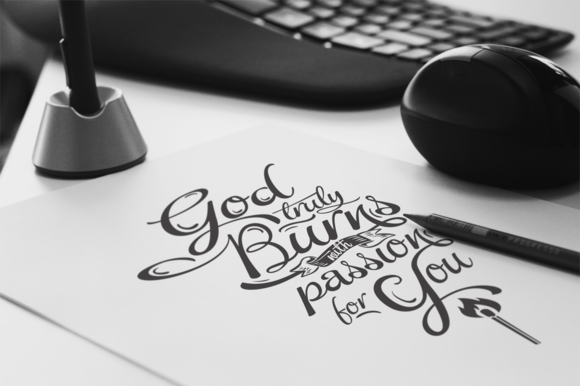 God
truly
Burns
with
passion
for You